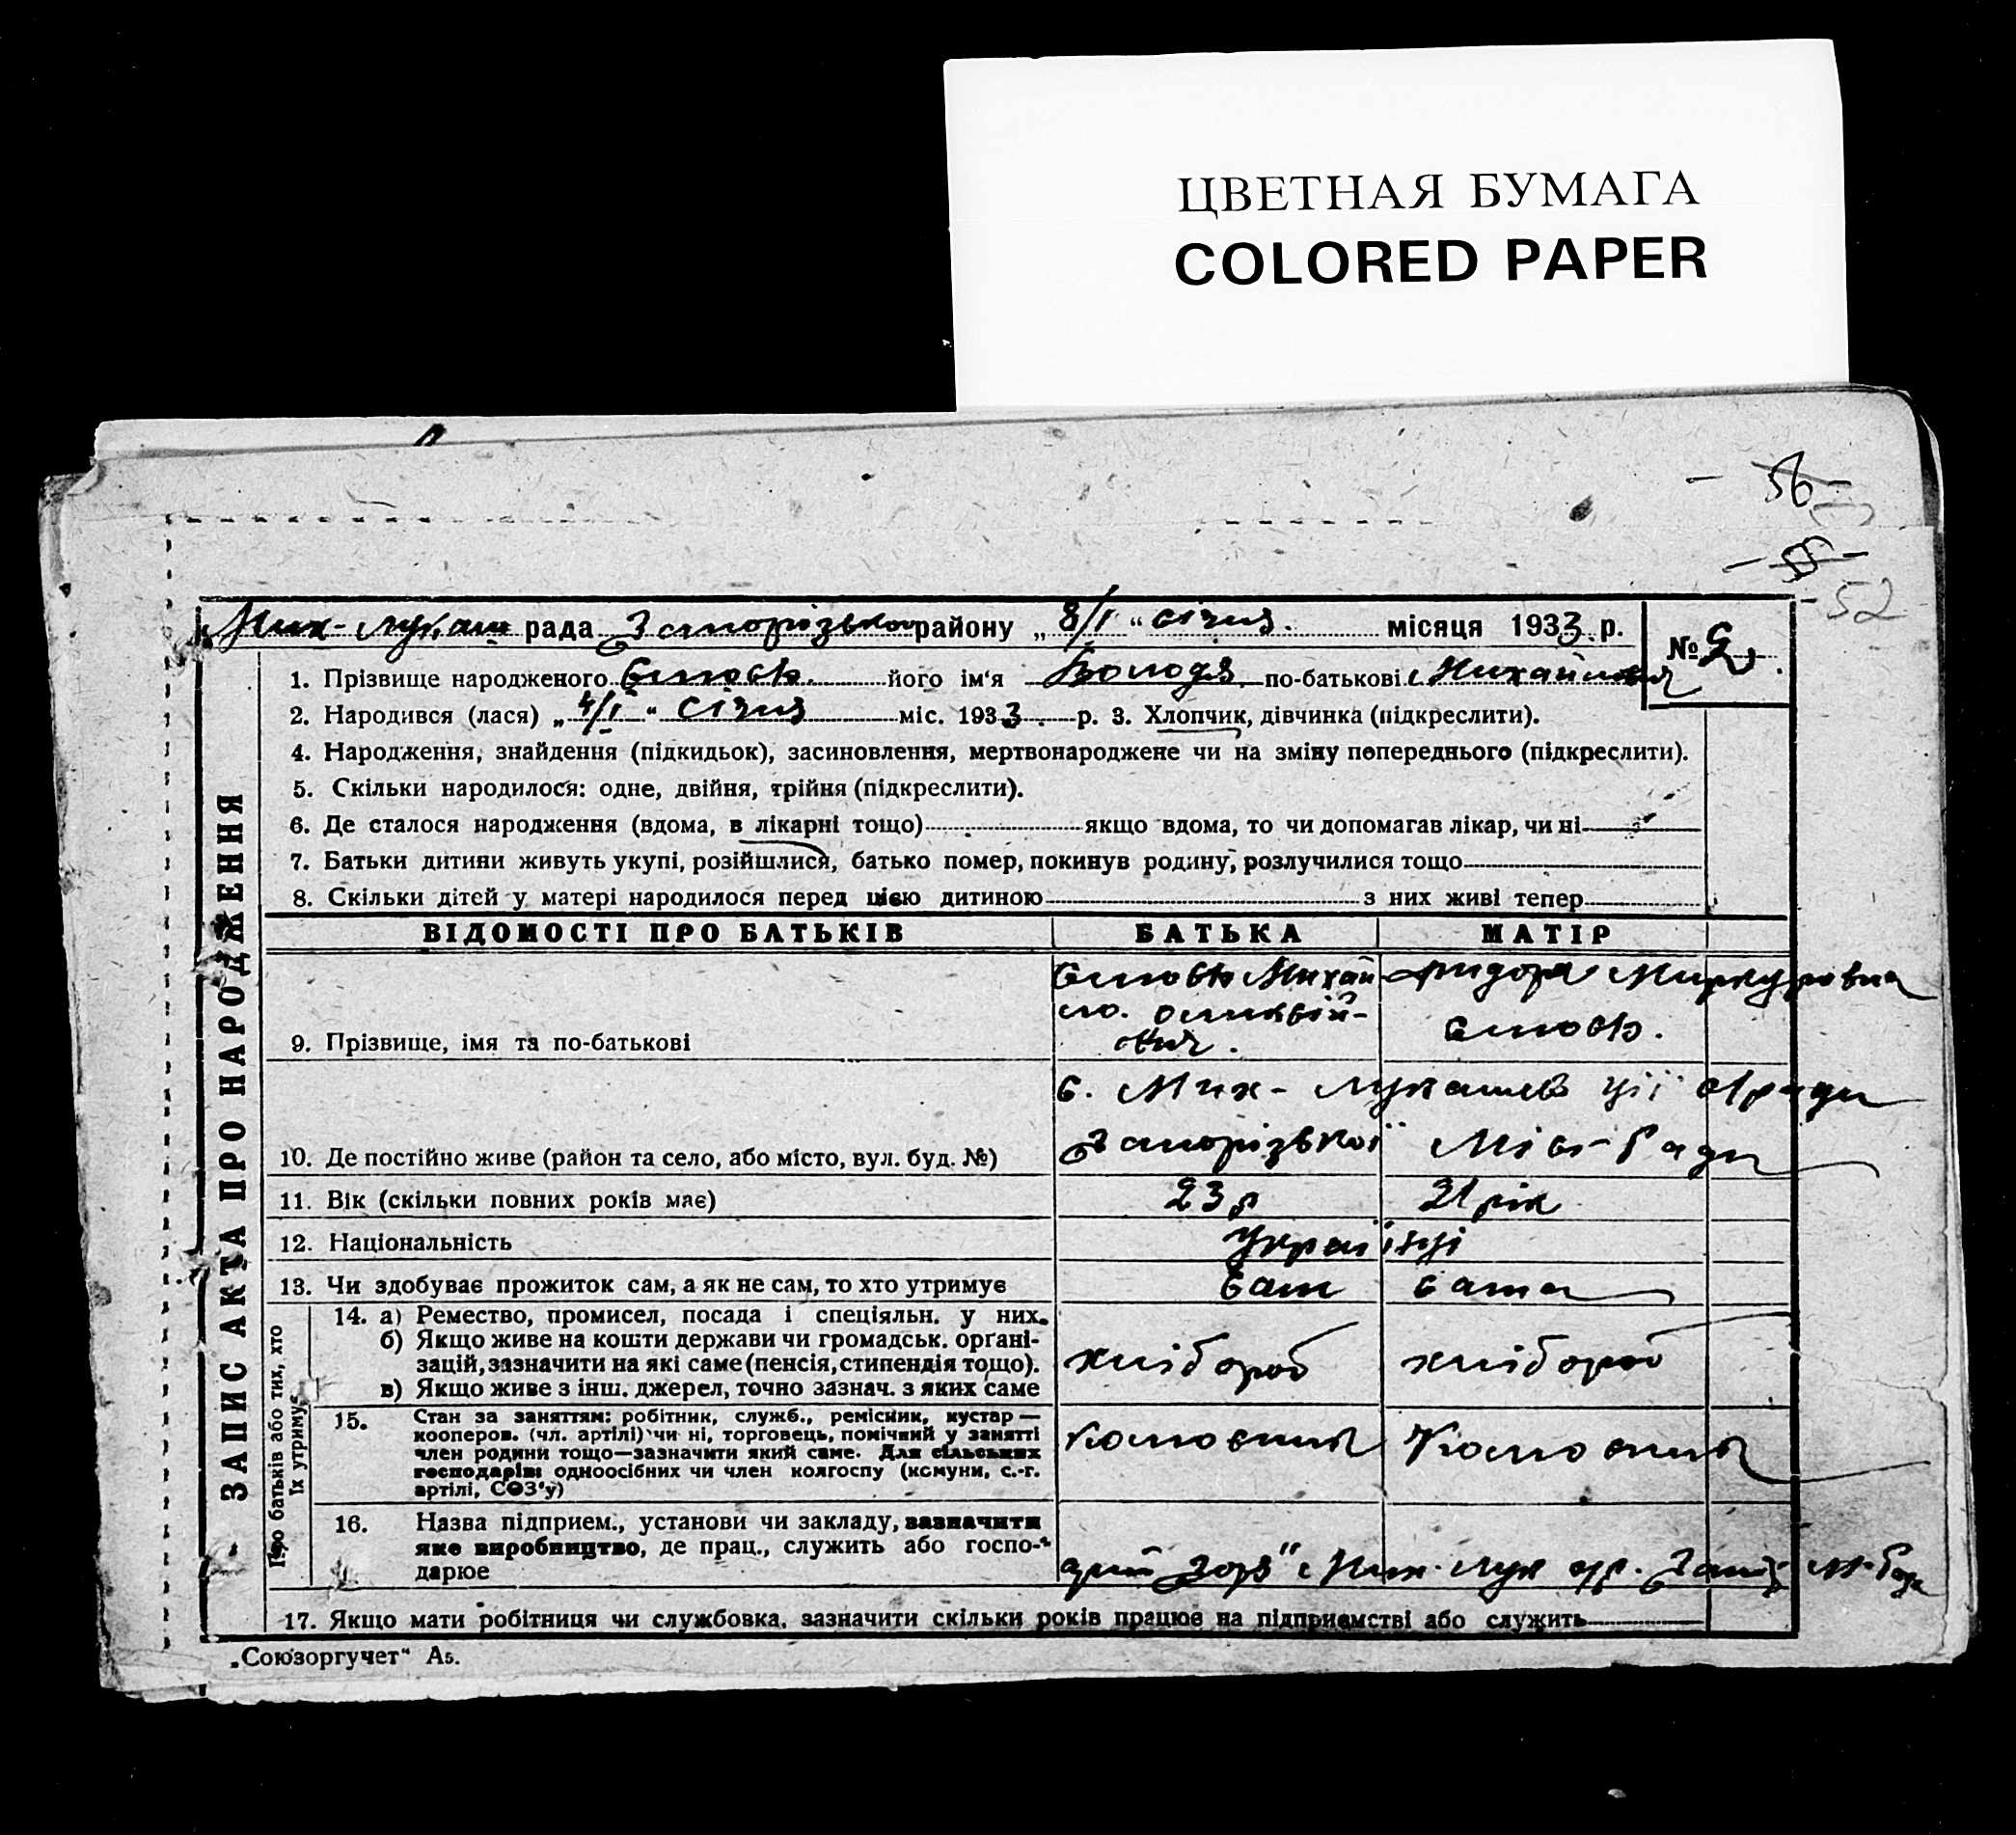 ЦВЕТНАЯ БУМАГА
COLORED PAPER
- 56 -
52
Мих-Лукаш рада Запорізького району „8/I“ січня місяця 1933 р. № 2
1. Прізвище народженого його ім'я Володя по-батькові Михайлович
2. Народився (лася) „4/I“ січня міс. 1933 р. 3. Хлопчик, дівчинка (підкреслити).
4. Народження, знайдення (підкидьок), засиновлення, мертвонароджене чи на зміну попереднього (підкреслити).
5. Скільки народилося: одне, двійня, трійня (підкреслити).
6. Де сталося народження (вдома, в лікарні тощо) якщо вдома, то чи допомагав лікар, чи ні
7. Батьки дитини живуть укупі, розійшлися, батько помер, покинув родину, розлучилися тощо
8. Скільки дітей у матері народилося перед цією дитиною з них живі тепер
ЗАПИС АКТА ПРО НАРОДЖЕННЯ
ВІДОМОСТІ ПРО БАТЬКІВ БАТЬКА МАТІР
9. Прізвище, імя та по-батькові
с. Мих-Лукашев ції с/ради
10. Де постійно живе (район та село, або місто, вул. буд. №) Запорізької Місь-Ради
11. Вік (скільки повних років має) 23 р 21 рік
12. Національність Українці
13. Чи здобуває прожиток сам, а як не сам, то хто утримує сам сама
Про батьків або тих, хто їх утримує
14. а) Ремество, промисел, посада і спеціяльн. у них.
б) Якщо живе на кошти держави чи громадськ. органі-
зацій, зазначити на які саме (пенсія, стипендія тощо). хлібороб хлібороб
в) Якщо живе з інш. джерел, точно зазнач. з яких саме
15. Стан за заняттям: робітник, служб., ремісник, кустар —
кооперов. (чл. артілі) чи ні, торговець, помічний у занятті
член родини тощо—зазначити який саме. Для сільських
господарів: одноосібних чи член колгоспу (комуни, с.-г.
артілі, СОЗ'у)
16. Назва підприєм., установи чи закладу, зазначити
яке виробництво, де прац., служить або госпо-
дарюе
17. Якщо мати робітниця чи службовка, зазначити скільки років працює на підприємстві або служить
„Союзоргучет“ А5.